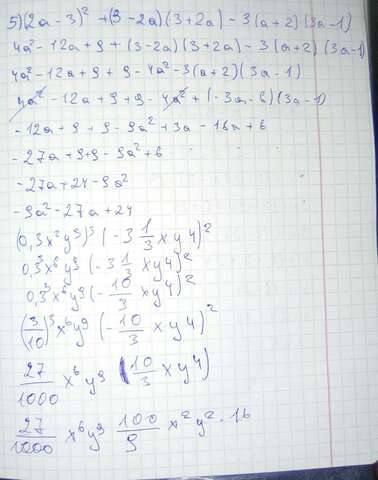 5)(2a-3)² +(3-2a)(3+2a)-3(a+2)(3a-1)
4a²-12a+9+(3-2a)(3+2a)-3(a+2)(3a-1)
4a²-12a+9+9-4a²-3(a+2)(3a-1)
4a²-12a+9+9-4a²+(-3a-6)(3a-1)
-12a+9+9-9a²+3a-18a+6
-27a+9+9-9a²+6
-27a+24-9a²
-9a²-27a+24
(0,3x²y³)³(-3 1/3 xy4)²
0,3³x⁶y⁹(-3 1/3 xy4)²
0,3³x⁶y⁹(-10/3 xy4)²
(3/10)³x⁶y⁹(-10/3 xy4)²
27/1000 x⁶y⁹ (10/3 xy4)
27/1000 x⁶y⁹ 100/9 x²y²·16